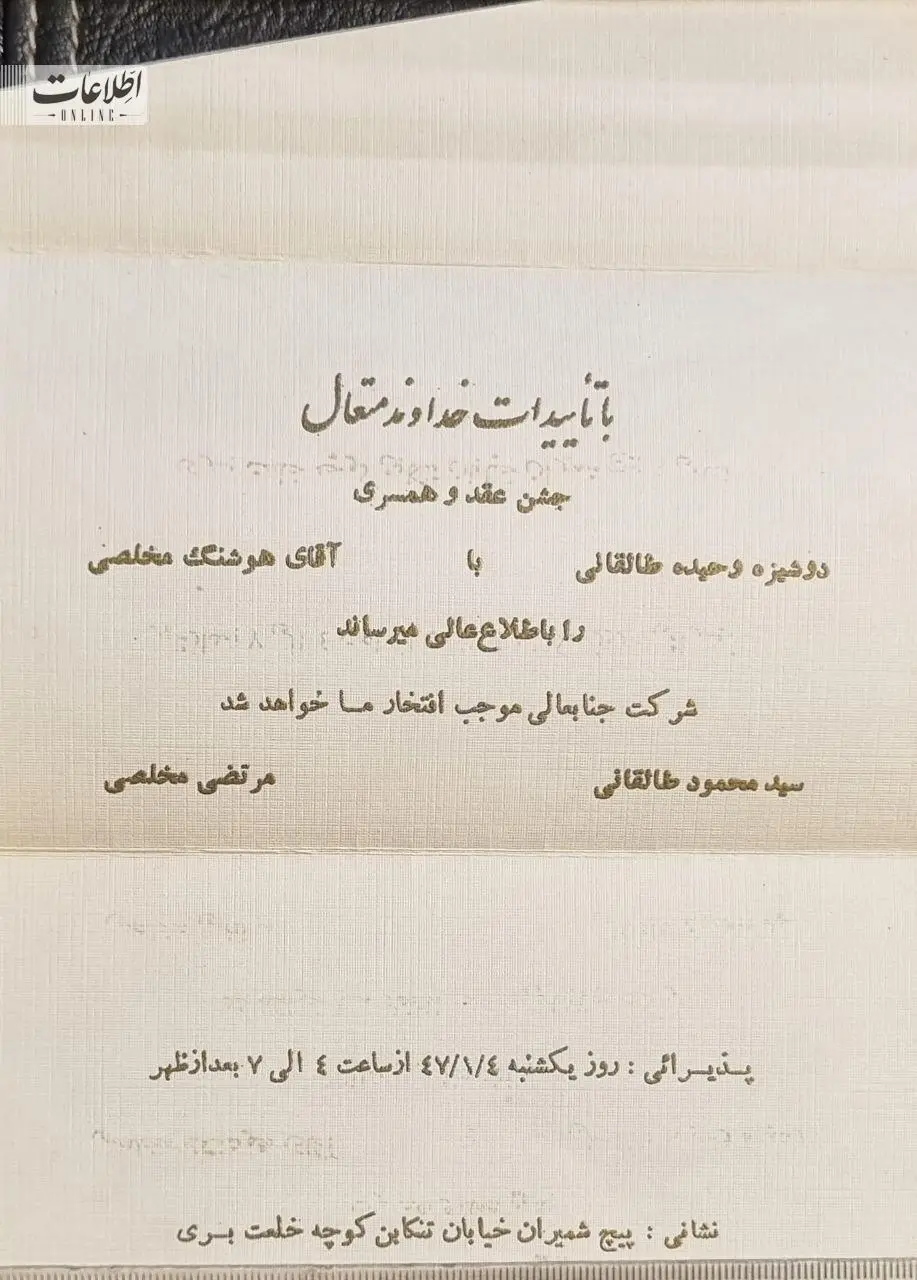 اطلاعات
ONLINE
با تأییدات خداوند متعال
جشن عقد و همسری
دوشیزه وحیده طالقانی با آقای هوشنگ مخلصی
را باطلاع عالی میرساند
شرکت جنابعالی موجب افتخار ما خواهد شد
سید محمود طالقانی مرتضی مخلصی
پذیرائی : روز یکشنبه ٤٧/١/٤ از ساعت ٤ الی ٧ بعدازظهر
نشانی : پیچ شمیران خیابان تنکابن کوچه خلعت بری